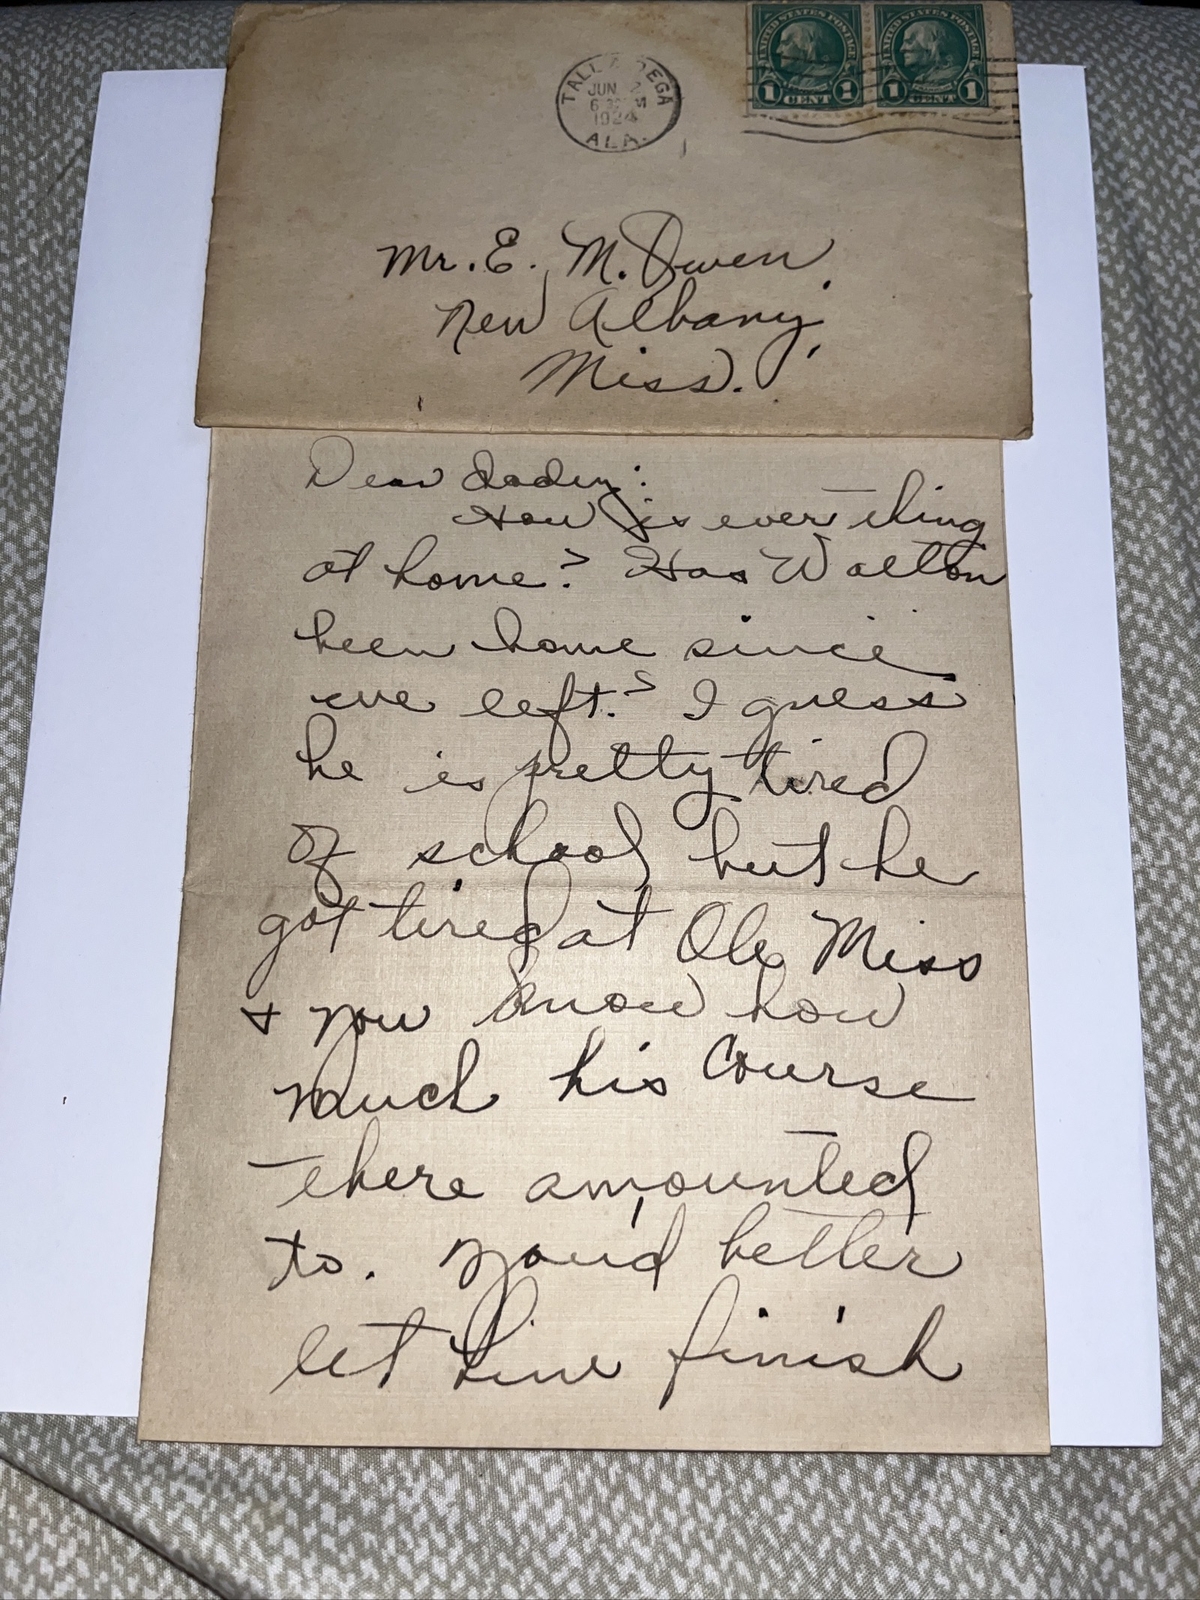 UNITED STATES POSTAGE
1 CENT 1
UNITED STATES POSTAGE
1 CENT 1
TALLADEGA
JUN
6 M
1924
ALA.
Mr. E. M. Owen,
New Albany,
Miss.
Dear dady:
How is everthing
at home? Has Walton
been home since
we left? I guess
he is pretty tired
of school but he
got tired at Ole Miss
+ you know how
much his course
there amounted
to. You'd better
let him finish